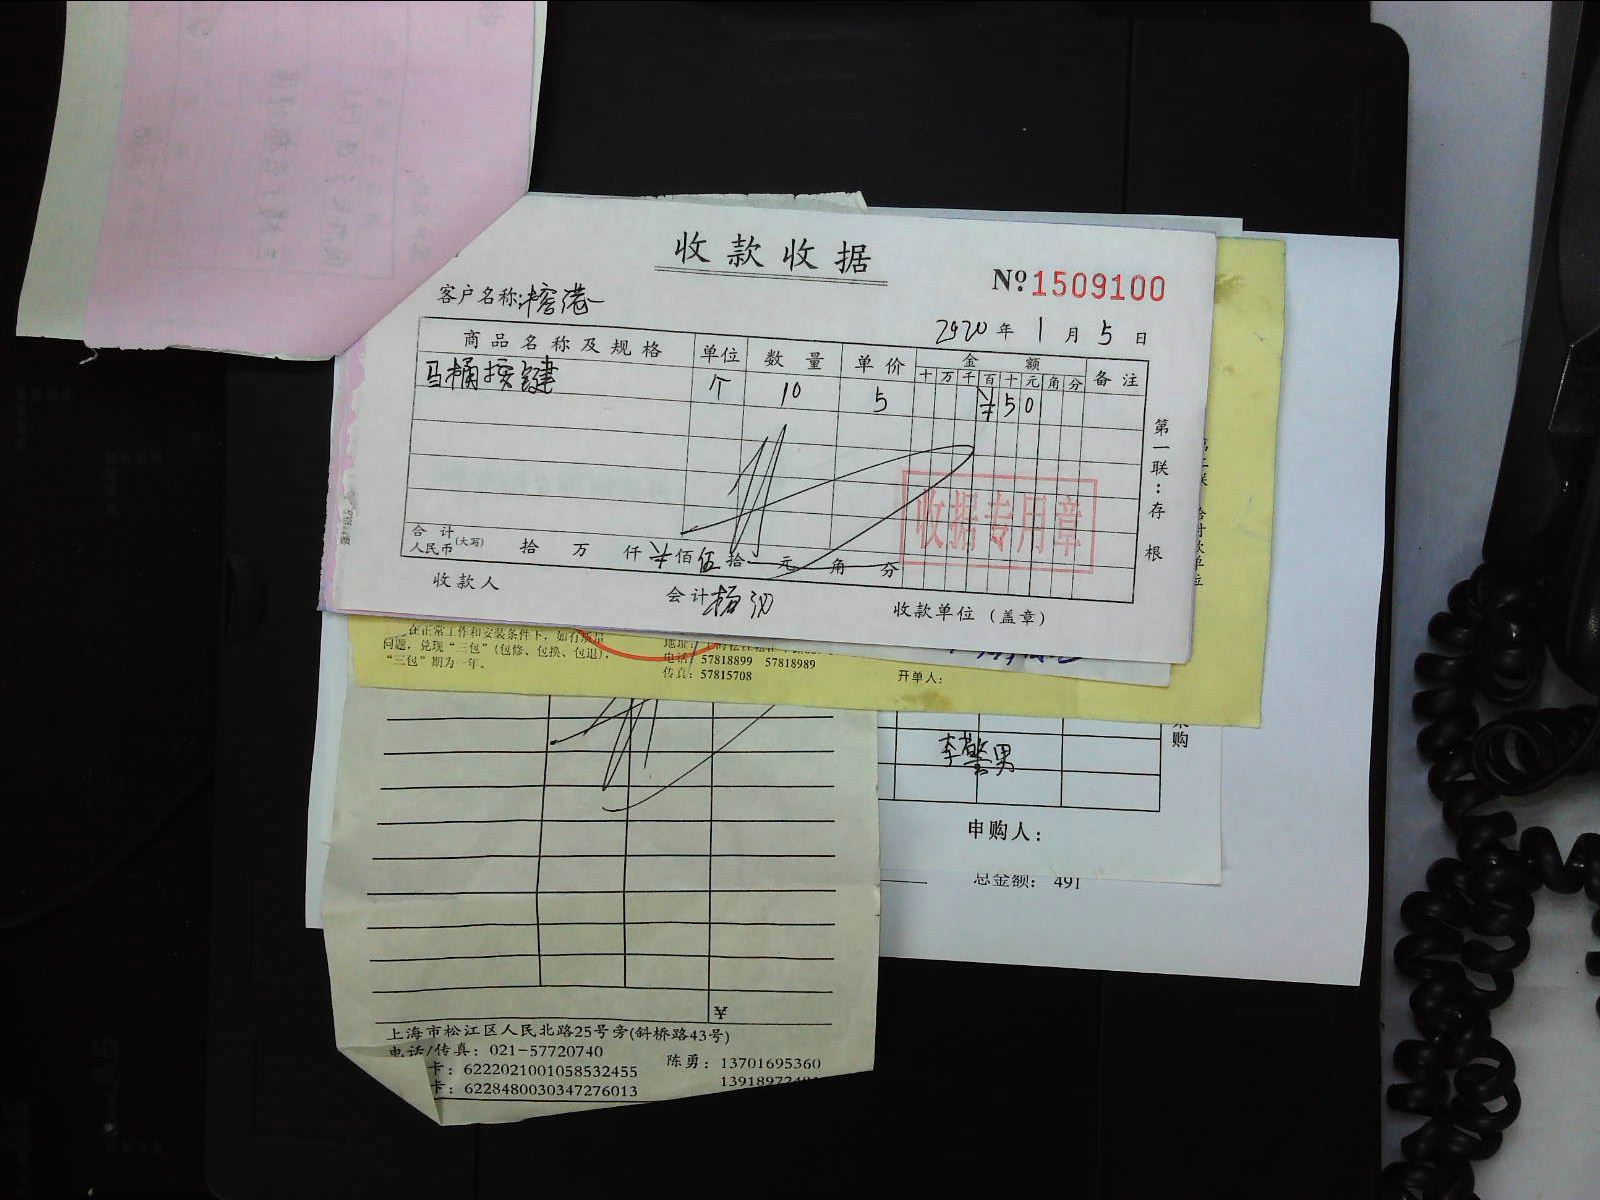 收款收据
№1509100
客户名称:榕港
2020年1月5日
商品名称及规格 单位 数量 单价 金额 备注
十 万 千 百 十 元 角 分
马桶按键 个 10 5 ¥ 5 0
第一联:存根
收据专用章
合计
人民币(大写) 拾 万 仟 ¥ 佰 伍 拾 元 角 分
收款人 会计 收款单位(盖章)
在正常工作和安装条件下,如有质量
问题,兑现“三包”(包修、包换、包退),
“三包”期为一年。
地址:
电话:57818899 57818989
传真:57815708
开单人:
购
申购人:
总金额: 491
¥
上海市松江区人民北路25号旁(斜桥路43号)
电话/传真:021-57720740
陈勇:13701695360
卡:6222021001058532455
卡:6228480030347276013